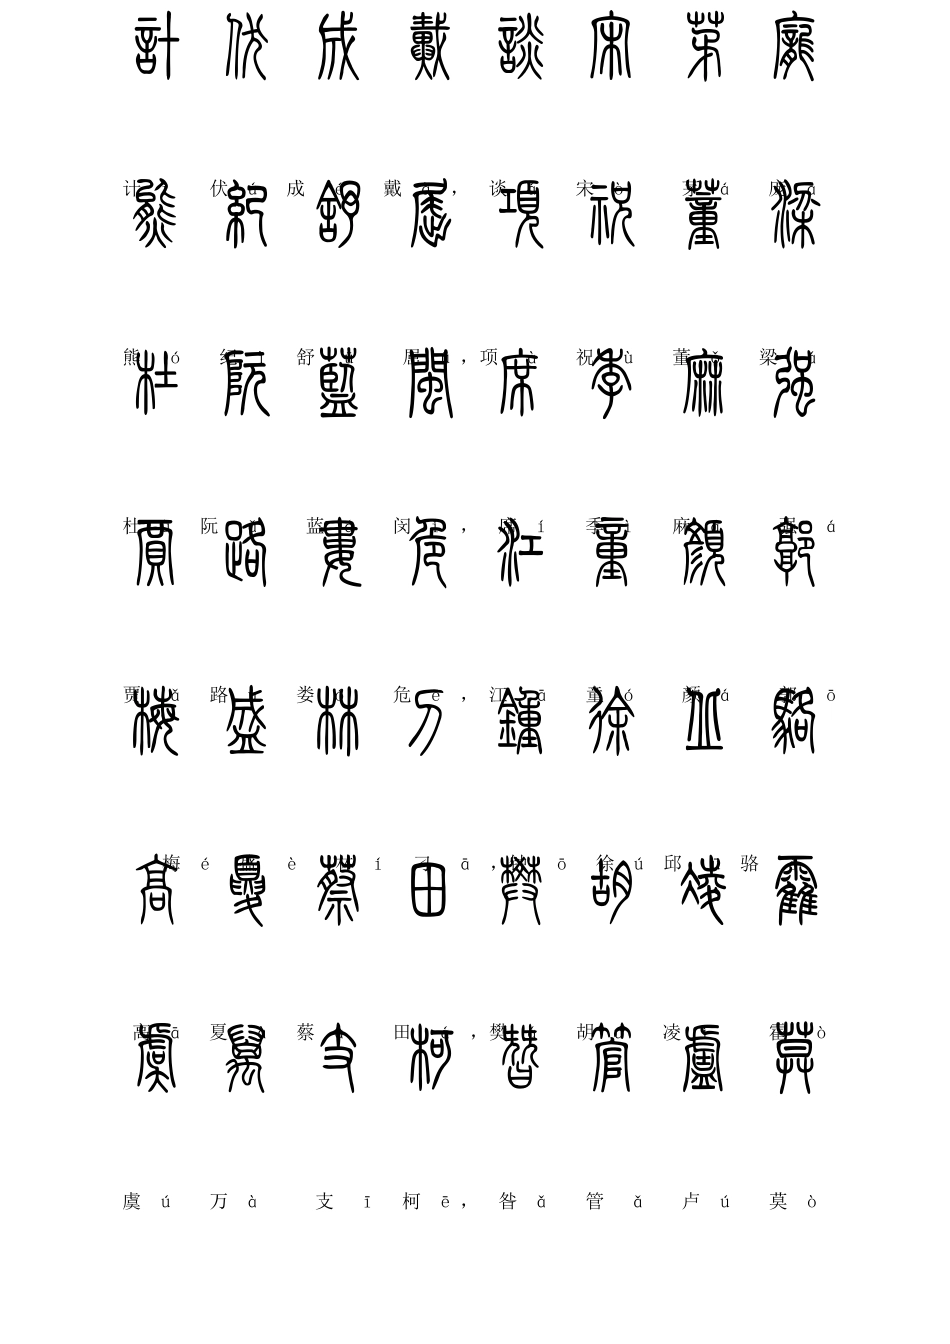 計 伏 成 戴 談 宋 茅 龐
计 伏 成 戴 ， 谈 宋
熊 紀 舒 屈 項 祝 董 梁
熊 ó 纪 舒 屈 ，项 à 祝 ù 董 ǒ 梁
杜 阮 藍 閔 席 季 麻 强
杜 阮 蓝 闵 ， 席 í 季 ì 麻 强 á
賈 路 婁 危 江 童 顏 郭
贾 ǎ 路 娄 危 ē ，江 ā 童 ó 颜 á 郭 ō
梅 盛 林 刁 鍾 徐 丘 駱
梅 é 盛 è 林 í 刁 ā ，钟 ō 徐 ú 邱 骆
高 夏 蔡 田 樊 胡 凌 霍
高 ā 夏 蔡 田 ，樊 胡 凌 霍 ò
虞 萬 支 柯 昝 管 盧 莫
虞 ú 万 à 支 ī 柯 ē ， 昝 ǎ 管 ǎ 卢 ú 莫 ò